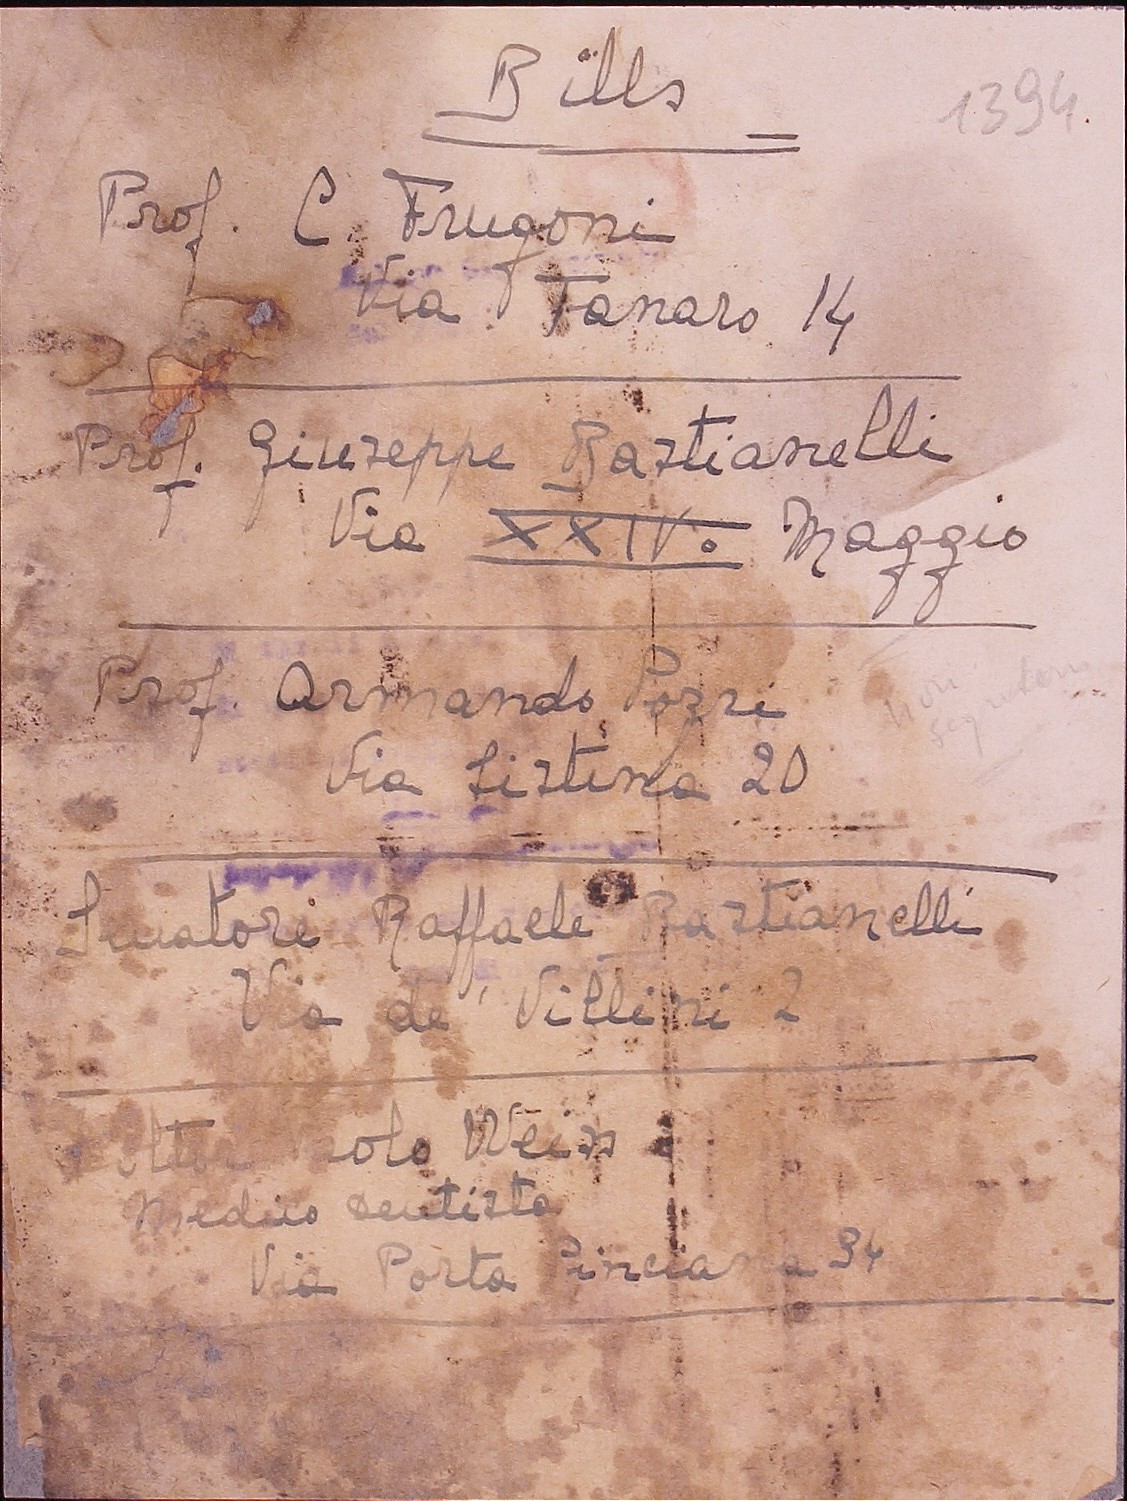 Bills
1394.
Prof. C. Frugoni
Via Tanaro 14
Prof. Giuseppe Bastianelli
Via XXIVo Maggio
Prof. Armando Pozzi
Via Sistina 20
Senatore Raffaele Bastianelli
Via de' Villini 2
Weiss
Medico dentista
Via Porta Pinciana 34